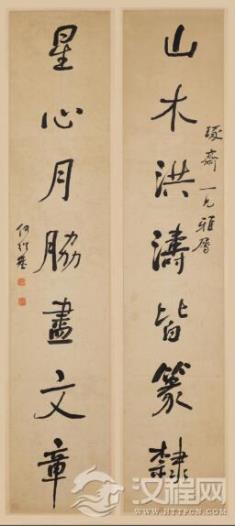 山木洪濤皆篆隸
琢齋一兄雅屬
星心月脇盡文章
何紹基
汉程网
WWW.HTTPCN.COM